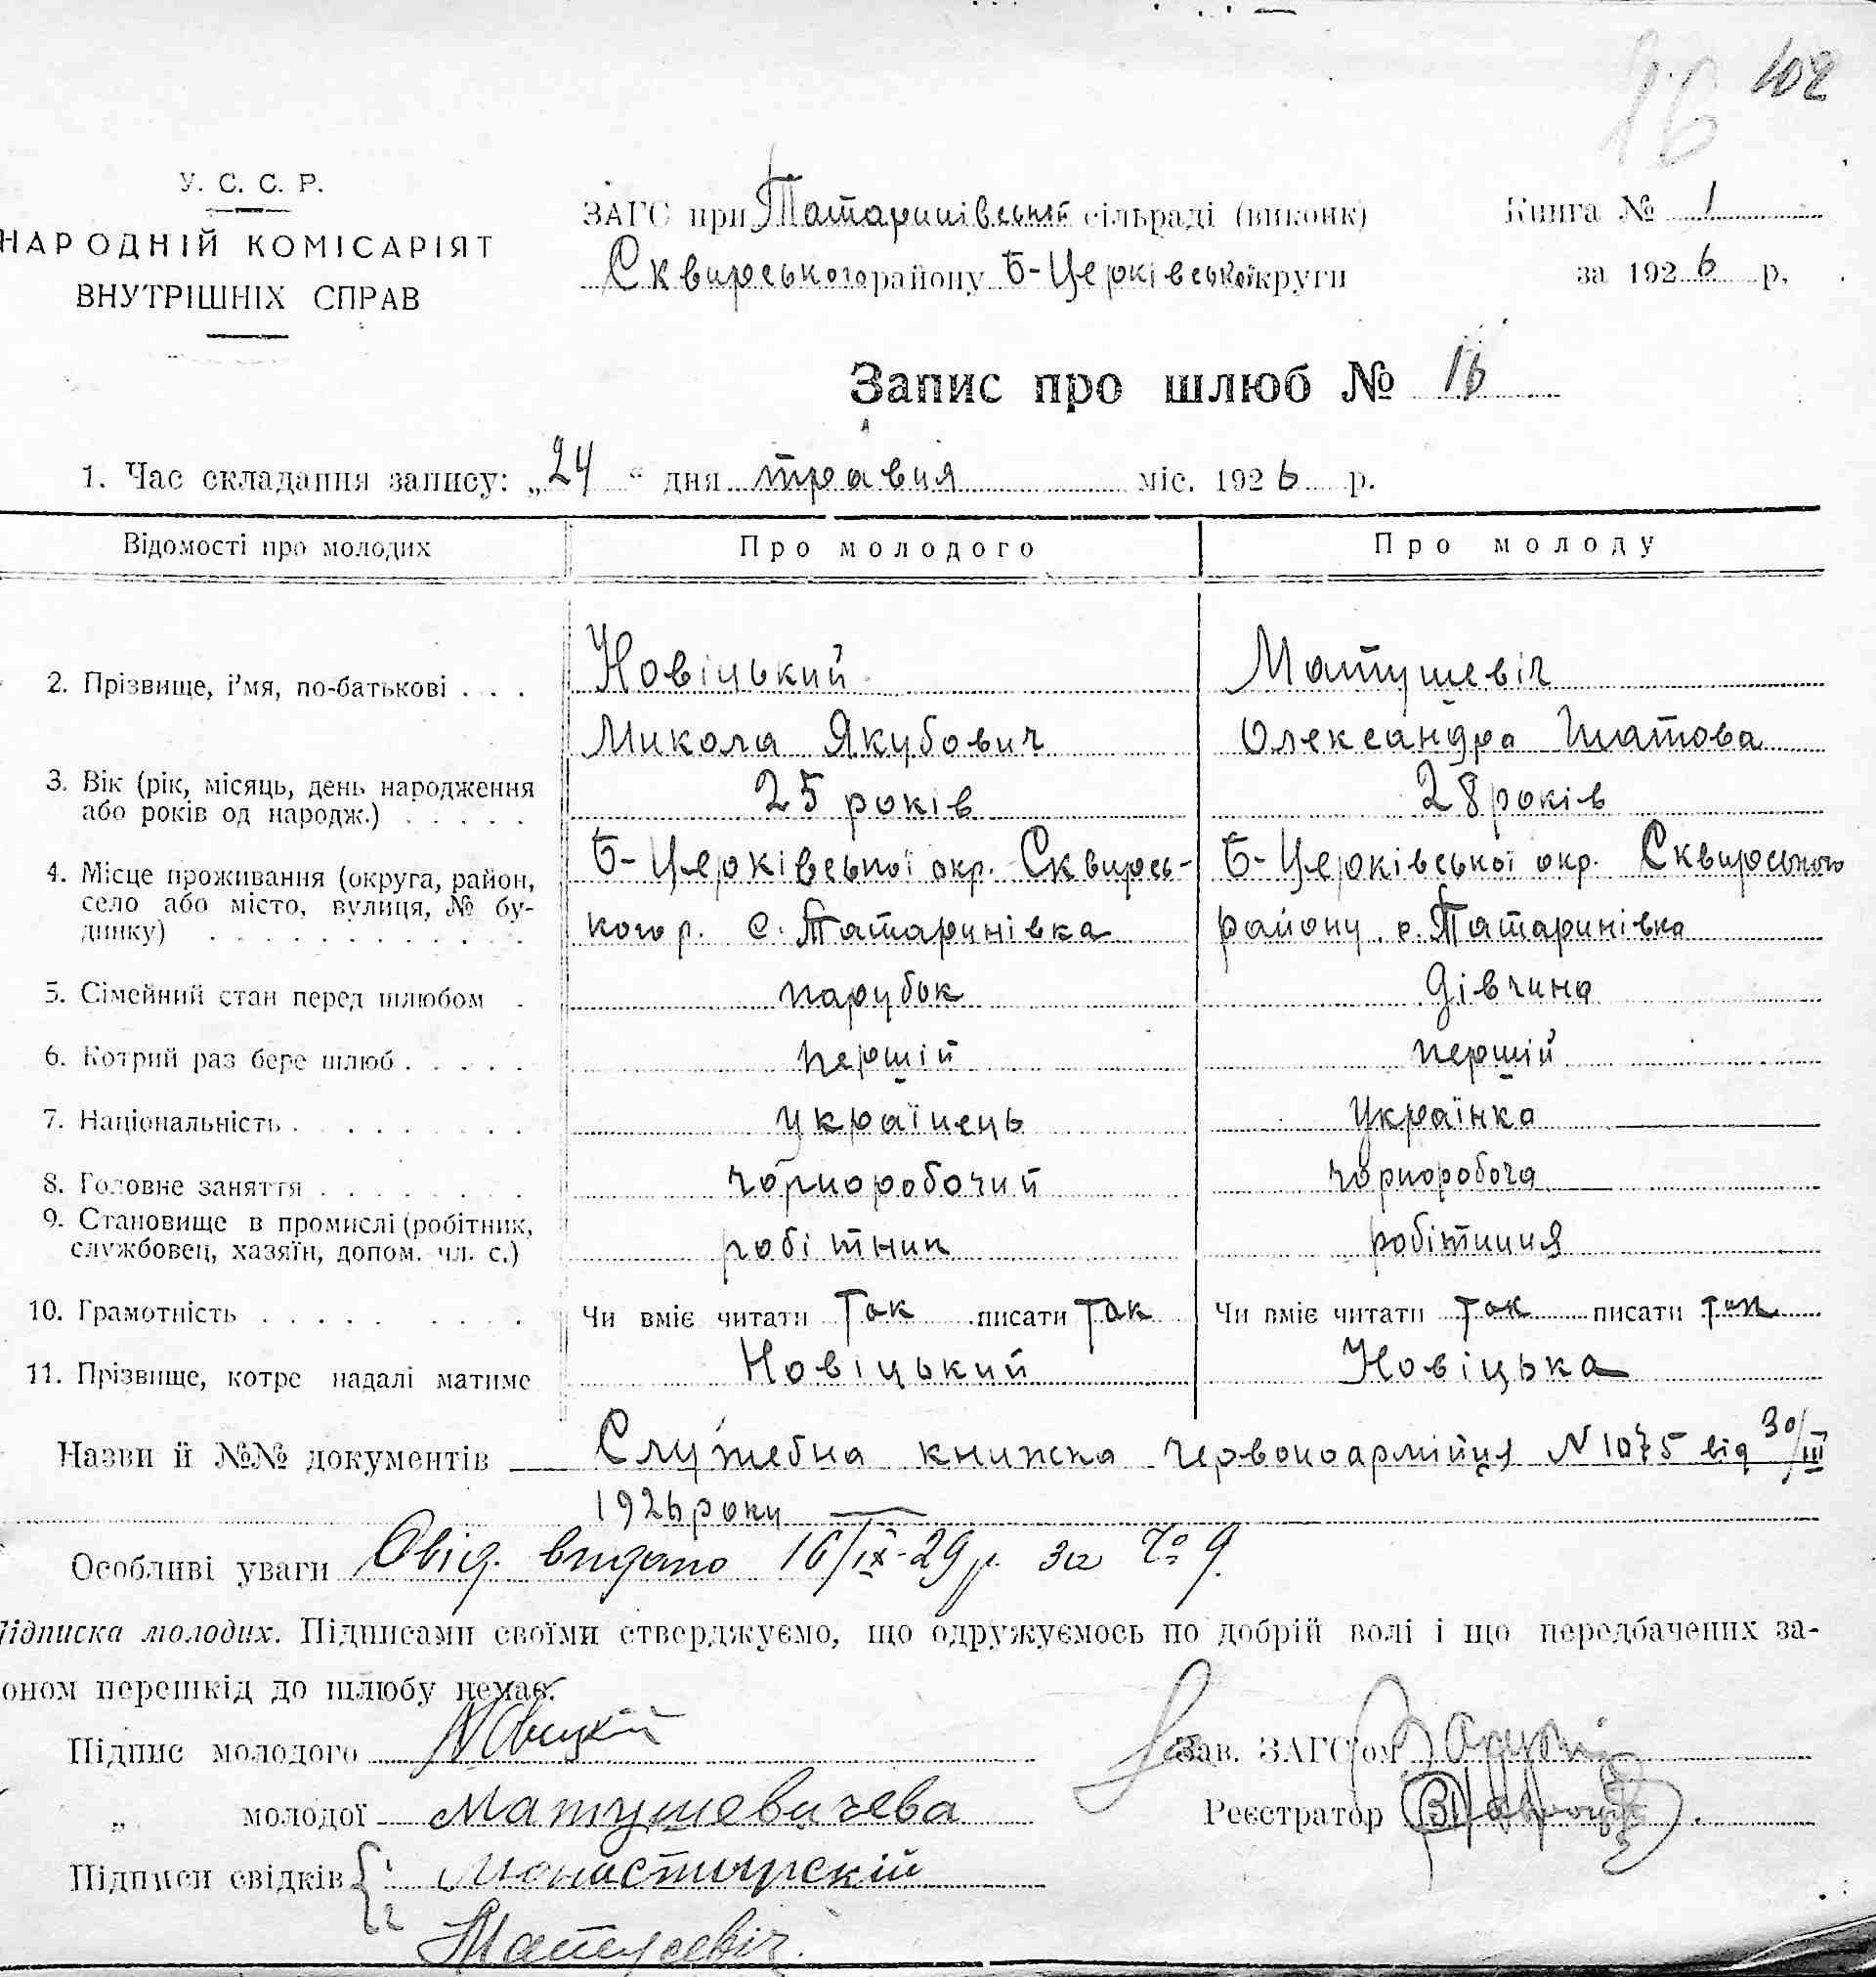 102
16
У. С. С. Р.
НАРОДНІЙ КОМІСАРІЯТ
ВНУТРІШНІХ СПРАВ
ЗАГС при Татаринівській сільраді (виконк)
Сквирського району Б-Церківської округи
Книга № 1
за 1926 р.
Запис про шлюб № 16
1. Час складання запису: „24“ дня травня міс. 1926 р.
Відомості про молодих Про молодого Про молоду
2. Прізвище, і'мя, по-батькові . . . Новіцький Матушевіч
Микола Якубович Олександра
3. Вік (рік, місяць, день народження
або років од народж.) . . . . . 25 років 28 років
4. Місце проживання (округа, район,
село або місто, вулиця, № бу-
динку) . . . . . . . . . . . .
Б-Церківської окр. Сквирсь-
кого р. с. Татаринівка
Б-Церківської окр. Сквирського
району с. Татаринівка
5. Сімейний стан перед шлюбом . парубок дівчина
6. Котрий раз бере шлюб . . . . . першій першій
7. Національність . . . . . . . . українець українка
8. Головне заняття . . . . . . . чорноробочий чорноробоча
9. Становище в промислі (робітник,
службовец, хазяїн, допом. чл. с.) робітник робітниця
10. Грамотність . . . . . . . . . Чи вміє читати так писати так Чи вміє читати так писати так
11. Прізвище, котре надалі матиме Новіцький Новіцька
Назви й №№ документів Служебна книжка червоноармійця N 1075 від 30/III
1926 року
Особливі уваги Свід. видано 16/IX-29 р. за № 9.
Підписка молодих. Підписами своїми стверджуємо, що одружуємось по добрій волі і що передбачених за-
оном перешкід до шлюбу немає.
Підпис молодого Зав. ЗАГС'ом
„ молодої Матушевичева Реєстратор
Підписи свідків 1 Монастырскій
2 Матусевіч.